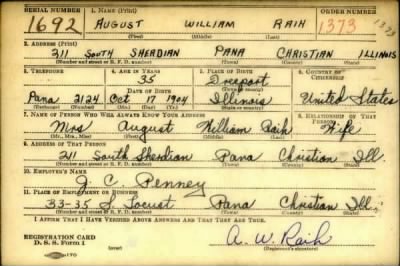 SERIAL NUMBER 1. NAME (Print) ORDER NUMBER
1692 AUGUST WILLIAM RAIH 1373
(First) (Middle) (Last)
2. ADDRESS (Print)
211 SOUTH SHERDIAN PANA CHRISTIAN ILLINOIS
(Number and street or R. F. D. number) (Town) (County) (State)
3. TELEPHONE 4. AGE IN YEARS 5. PLACE OF BIRTH 6. COUNTRY OF CITIZENSHIP
35 Freeport
DATE OF BIRTH (Town or county)
Pana 2124 Oct 17 1904 Illinois United States
(Exchange) (Number) (Mo.) (Day) (Yr.) (State or country)
7. NAME OF PERSON WHO WILL ALWAYS KNOW YOUR ADDRESS 8. RELATIONSHIP OF THAT PERSON
Mrs August William Raih Wife
(Mr., Mrs., Miss) (First) (Middle) (Last)
9. ADDRESS OF THAT PERSON
211 South Sherdian Pana Christian Ill.
(Number and street or R. F. D. number) (Town) (County) (State)
10. EMPLOYER'S NAME
J. C. Penney
11. PLACE OF EMPLOYMENT OR BUSINESS
33-35 S. Locust Pana Christian Ill.
(Number and street or R. F. D. number) (Town) (County) (State)
I AFFIRM THAT I HAVE VERIFIED ABOVE ANSWERS AND THAT THEY ARE TRUE.
REGISTRATION CARD
D. S. S. Form 1 A. W. Raih
(Registrant's signature)